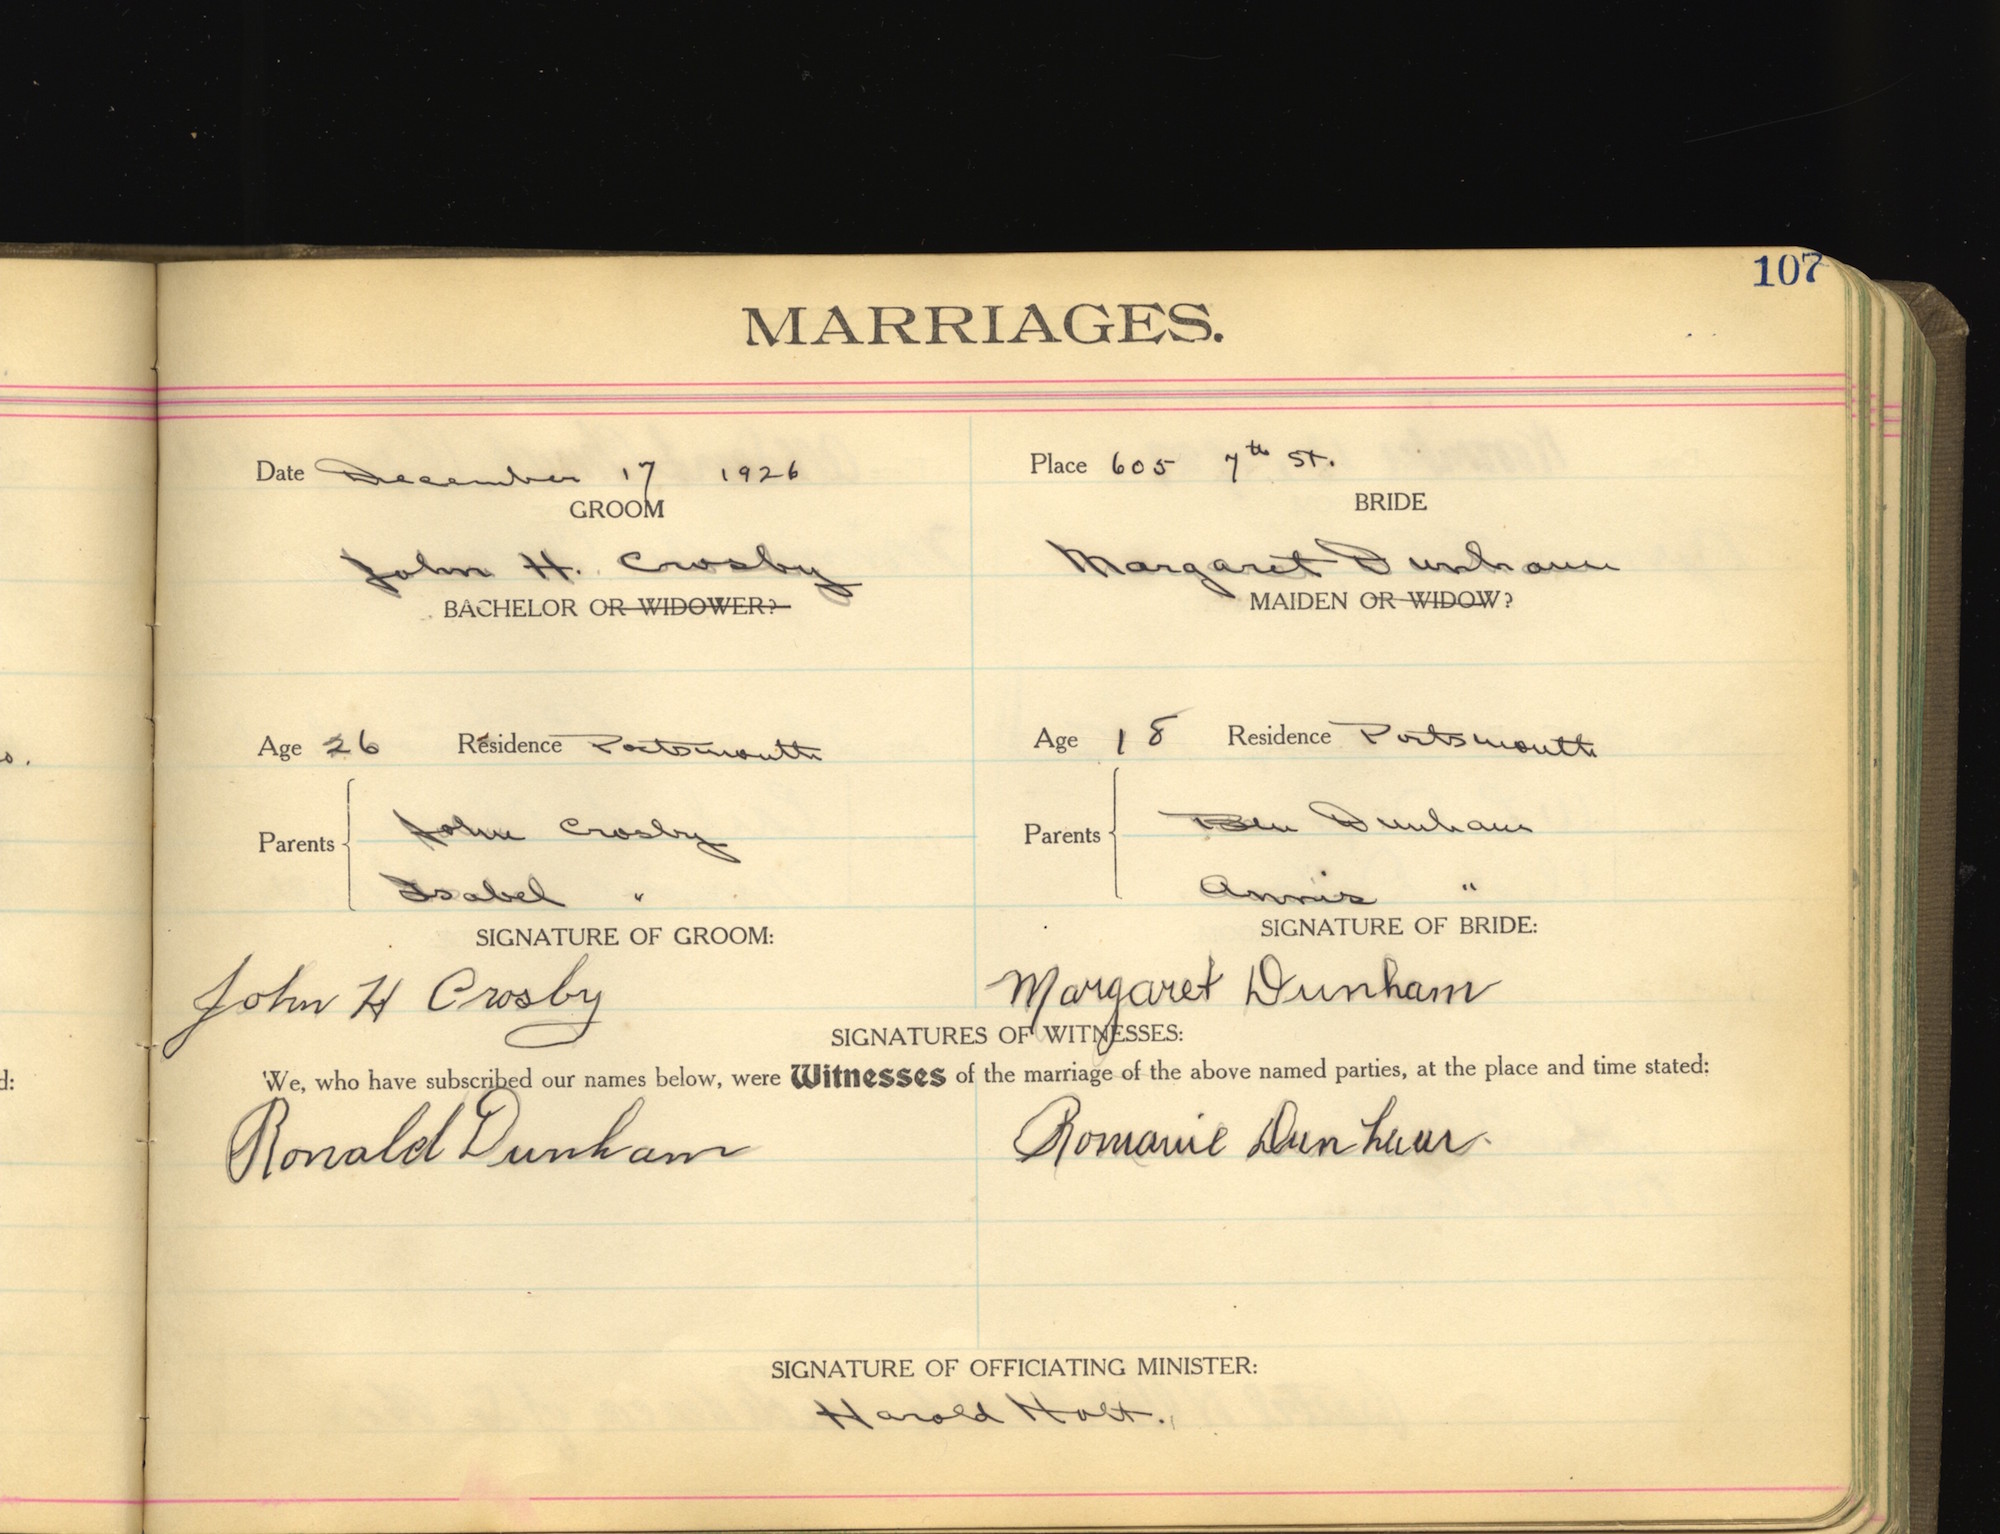 107
MARRIAGES.
Date December 17 1926
Place 605 7th St.
GROOM
BRIDE
John H. Crosby
Margaret Dunham
BACHELOR OR WIDOWER?
MAIDEN OR WIDOW?
Age 26 Residence Portsmouth
Age 18 Residence Portsmouth
Parents
John Crosby
Isabel "
Parents
Ben Dunham
Annie "
SIGNATURE OF GROOM:
SIGNATURE OF BRIDE:
John H Crosby
Margaret Dunham
SIGNATURES OF WITNESSES:
We, who have subscribed our names below, were Witnesses of the marriage of the above named parties, at the place and time stated:
Ronald Dunham
Dunham
SIGNATURE OF OFFICIATING MINISTER:
Harold Holt.